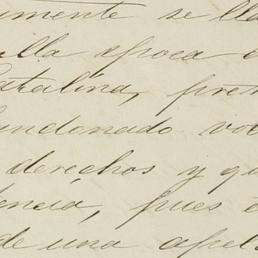 umente se lla
ella epoca
Catalina, pret
undonado vol
derechos y qu
encia, pues
de una apel